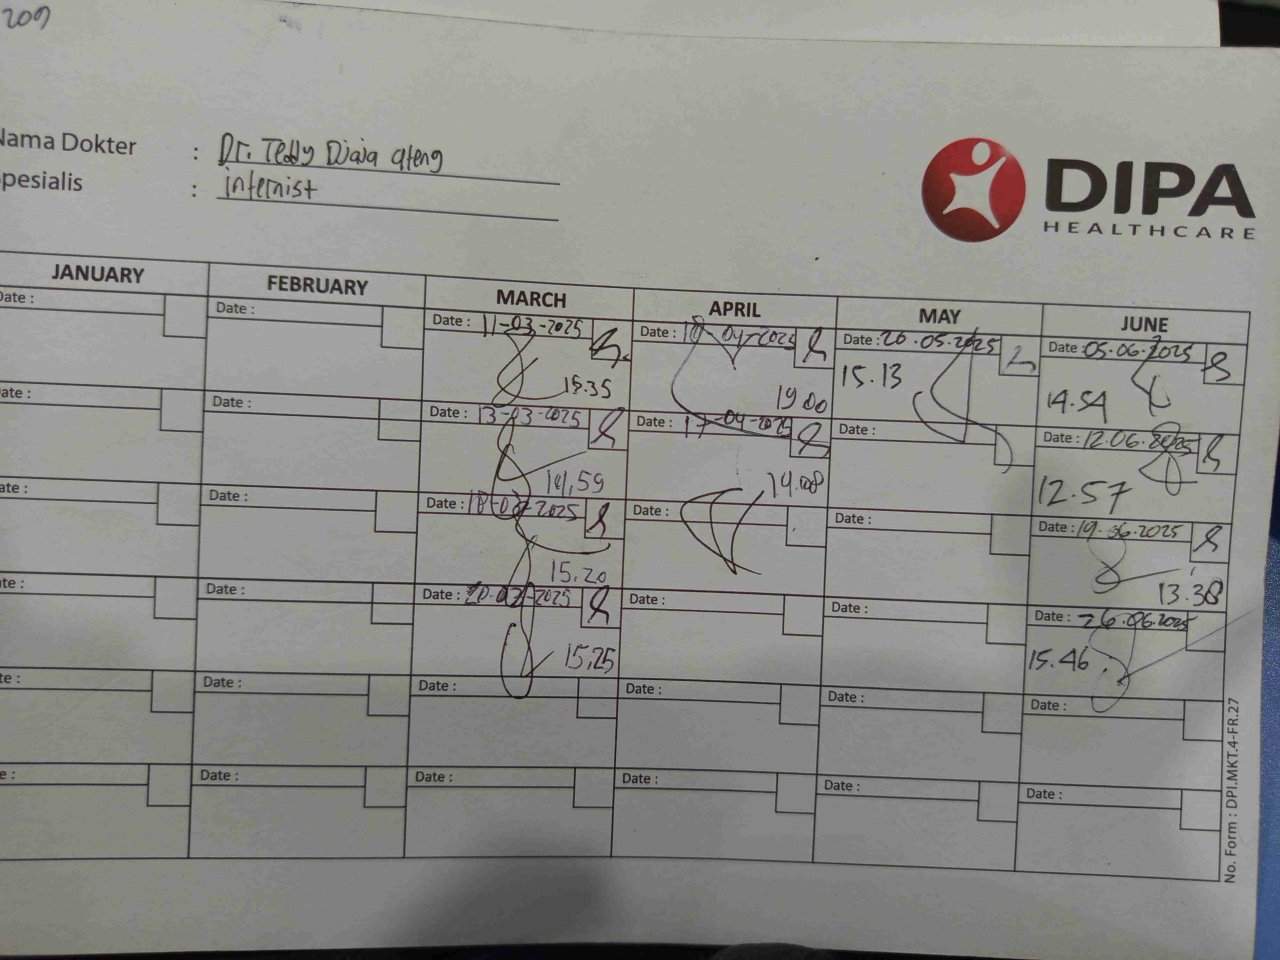 209
Nama Dokter : Dr. Teddy Djaja ateng
Spesialis : internist
DIPA
HEALTHCARE
JANUARY FEBRUARY MARCH APRIL MAY JUNE
Date : Date : Date : 11-03-2025 Date : 10-04-2025 Date : 20.05.2025 Date : 05.06.2025
15.35 19.00 15.13 14.54
Date : Date : Date : 13-03-2025 Date : 17-04-2025 Date : Date : 12.06.2025
14,59 14.08 12.57
Date : Date : Date : 18-03-2025 Date : Date : Date : 19.06.2025
15.20 13.38
Date : Date : Date : 20-03-2025 Date : Date : Date : 26.06.2025
15,25 15.46
Date : Date : Date : Date : Date : Date :
Date : Date : Date : Date : Date : Date :
No. Form : DPI.MKT.4-FR.27